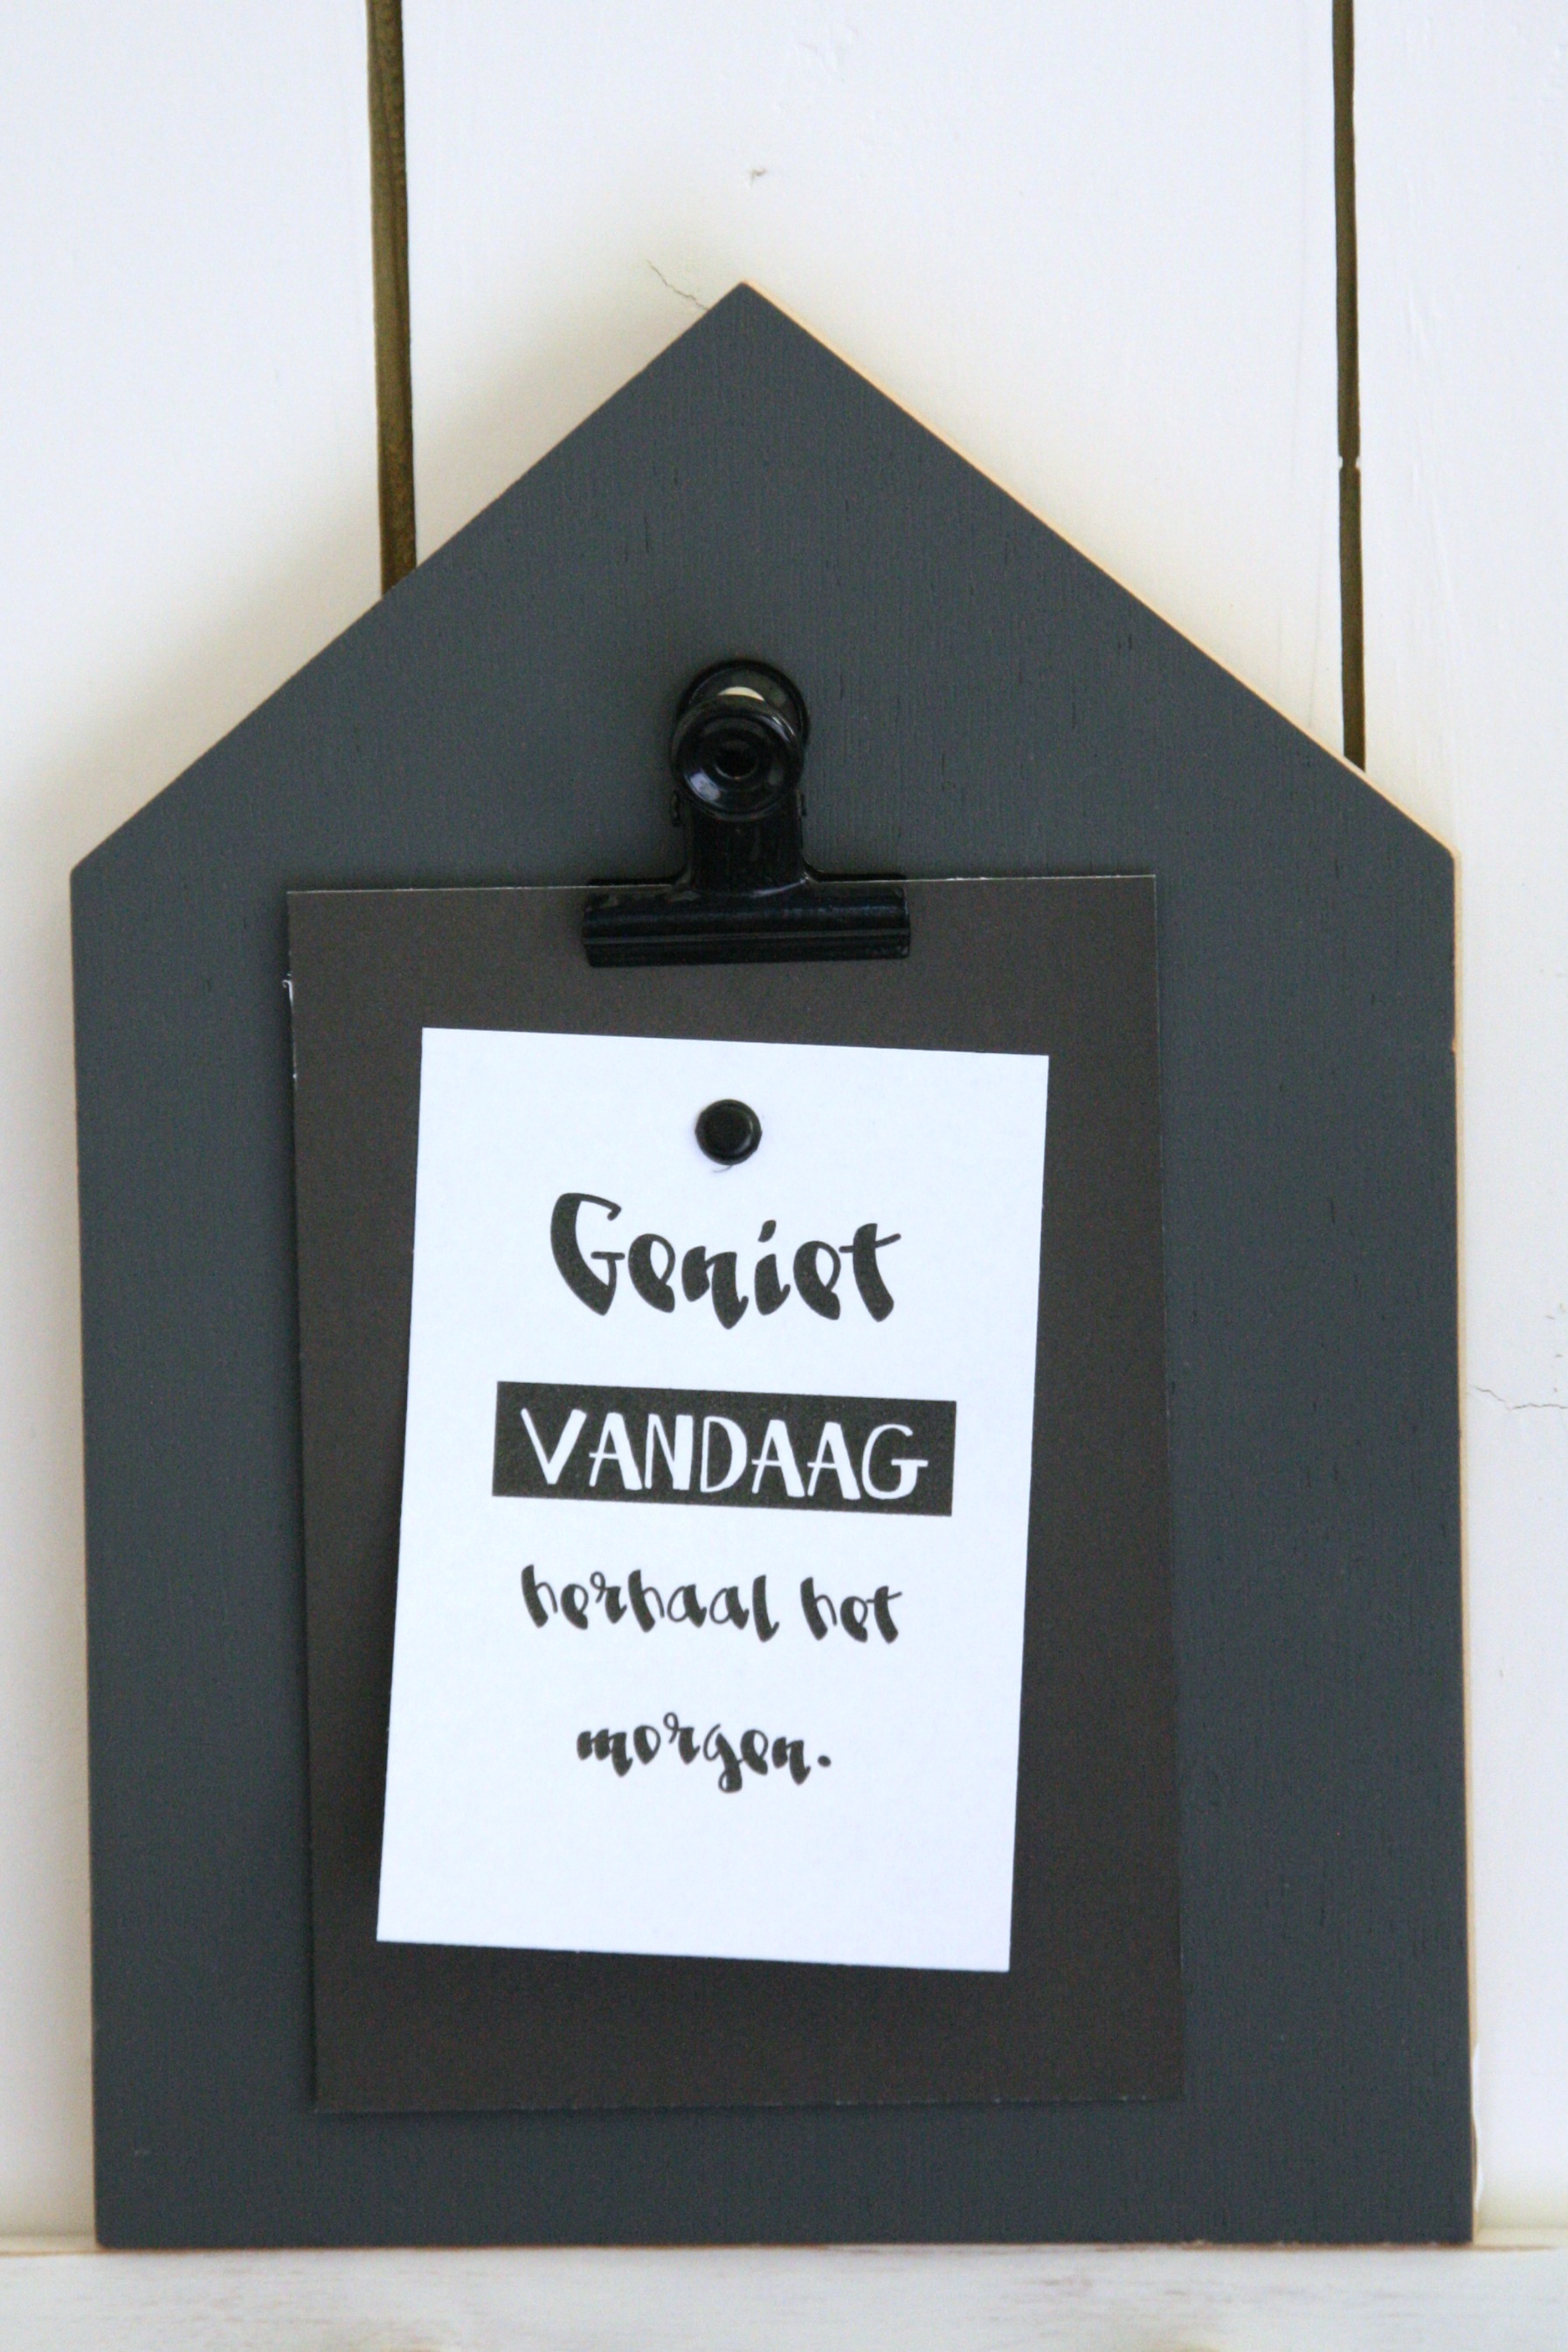 Geniet
VANDAAG
herhaal het
morgen.